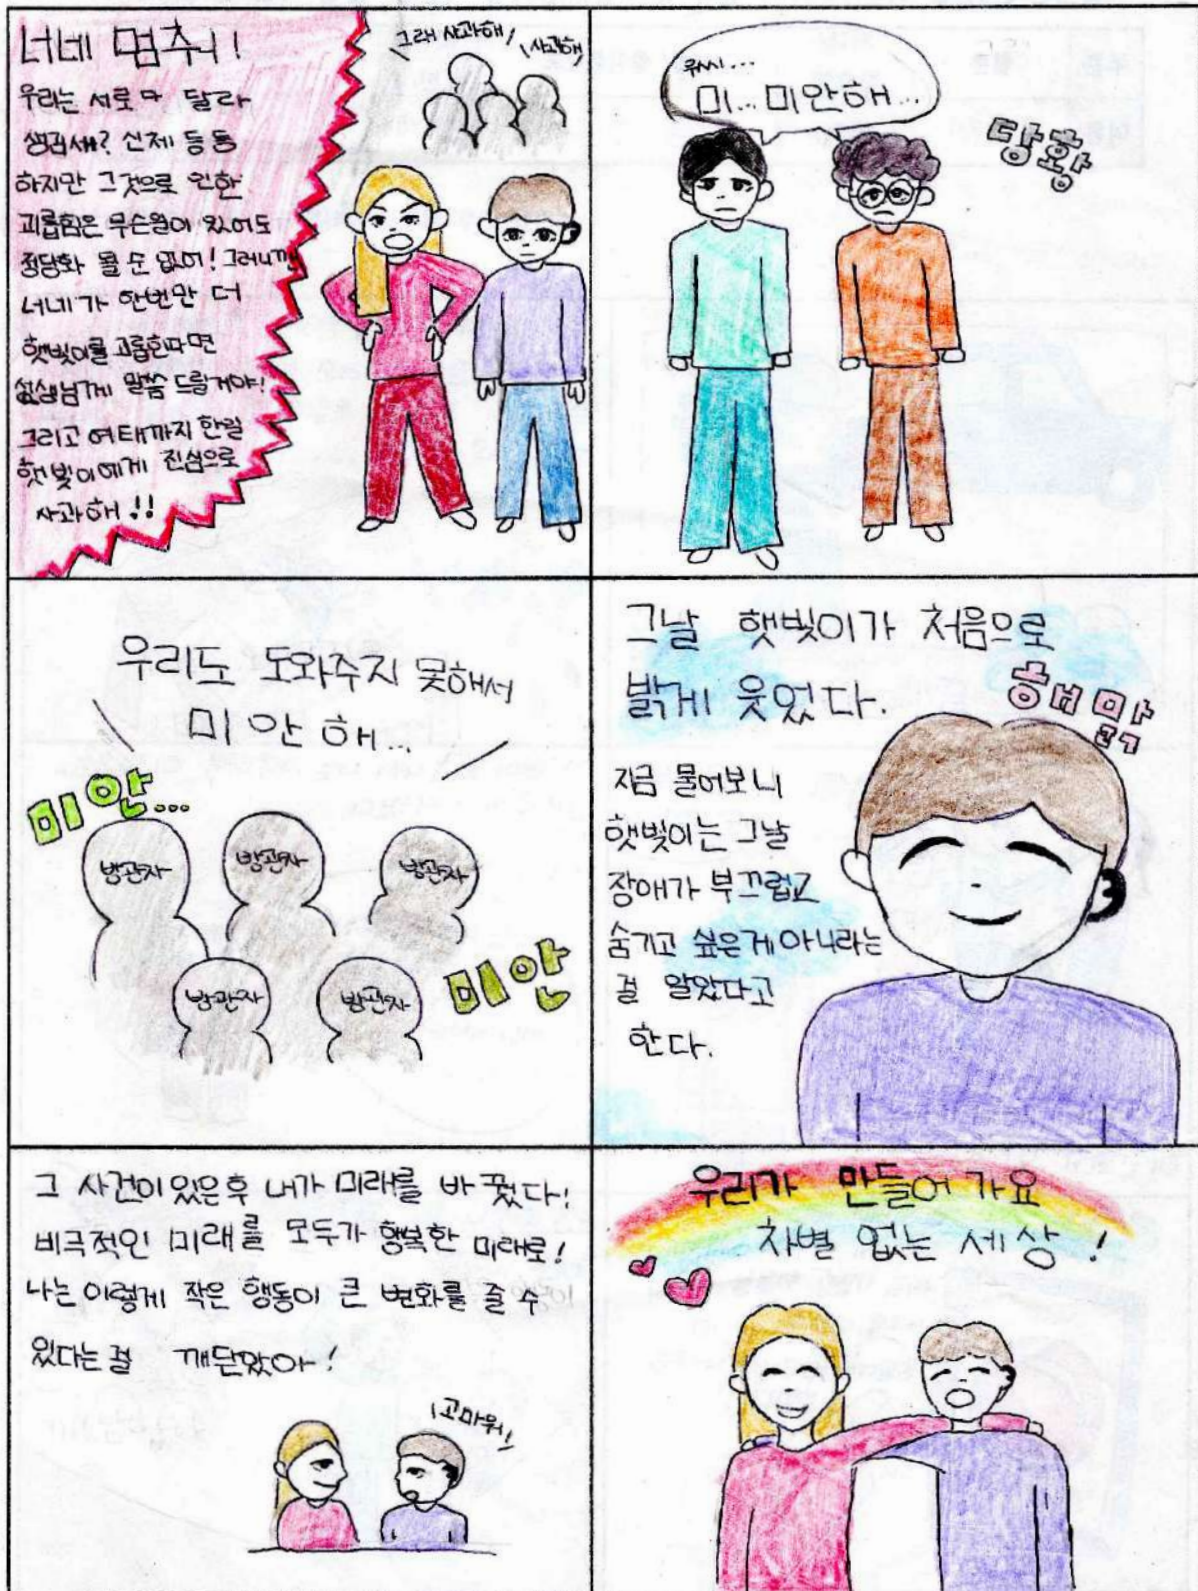 너네 멈춰!
우리는 서로 다 달라
생김새? 신체 등등
하지만 그것으로 인한
괴롭힘은 무슨일이 있어도
정당화 될 순 없어! 그러니까!!
너네가 한번만 더
햇빛이를 괴롭힌다면
선생님께 말씀 드릴거야!
그리고 여태까지 한일
햇빛이에게 진심으로
사과해!!
그래 사과해!
사과해
우씨...
미...미안해...
당황
우리도 도와주지 못해서
미안해...
미안...
방관자
방관자
방관자
방관자
방관자
미안
그날 햇빛이가 처음으로
밝게 웃었다.
해맑
지금 물어보니
햇빛이는 그날
장애가 부끄럽고
숨기고 싶은게 아니라는
걸 알았다고
한다.
그 사건이 있은후 내가 미래를 바꿨다!
비극적인 미래를 모두가 행복한 미래로!
나는 이렇게 작은 행동이 큰 변화를 줄 수
있다는 걸 깨닫았아!
고마워!
우리가 만들어 가요
차별 없는 세상!